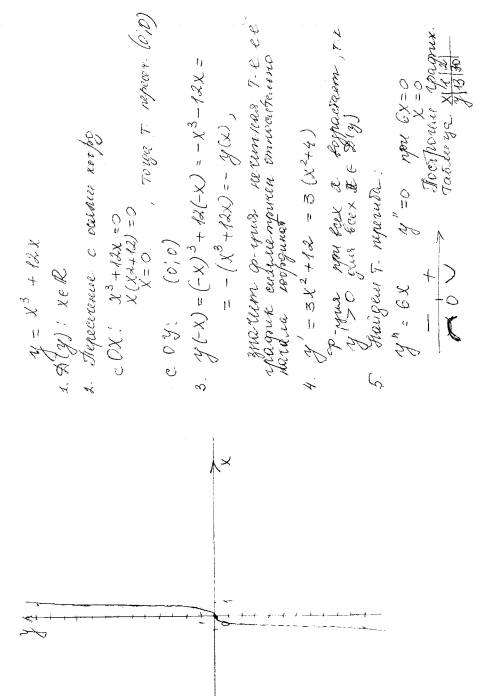 y = x³ + 12x
1. D(y): x∈R
2. Пересечение с осями коорд
с OX: x³+12x=0
x(x²+12)=0
x=0, тоща т. пересеч. (0;0)
с OY: (0;0)
3. y(-x) = (-x)³ + 12(-x) = -x³ - 12x =
= -(x³+12x) = -y(x),
значит ф-ция нечитная т-е её
график симметричен относительно
начала координат
4. y' = 3x²+12 = 3(x²+4)
ф-ция при всех x возрастает, т.к
y > 0 для всех x ∈ D(y)
5. Найдем т. перегиба:
y" = 6x y" = 0 при 6x=0
x=0
− +
0
Построим график.
таблица
x|1|2|
y|13|30|
y
x
1
0